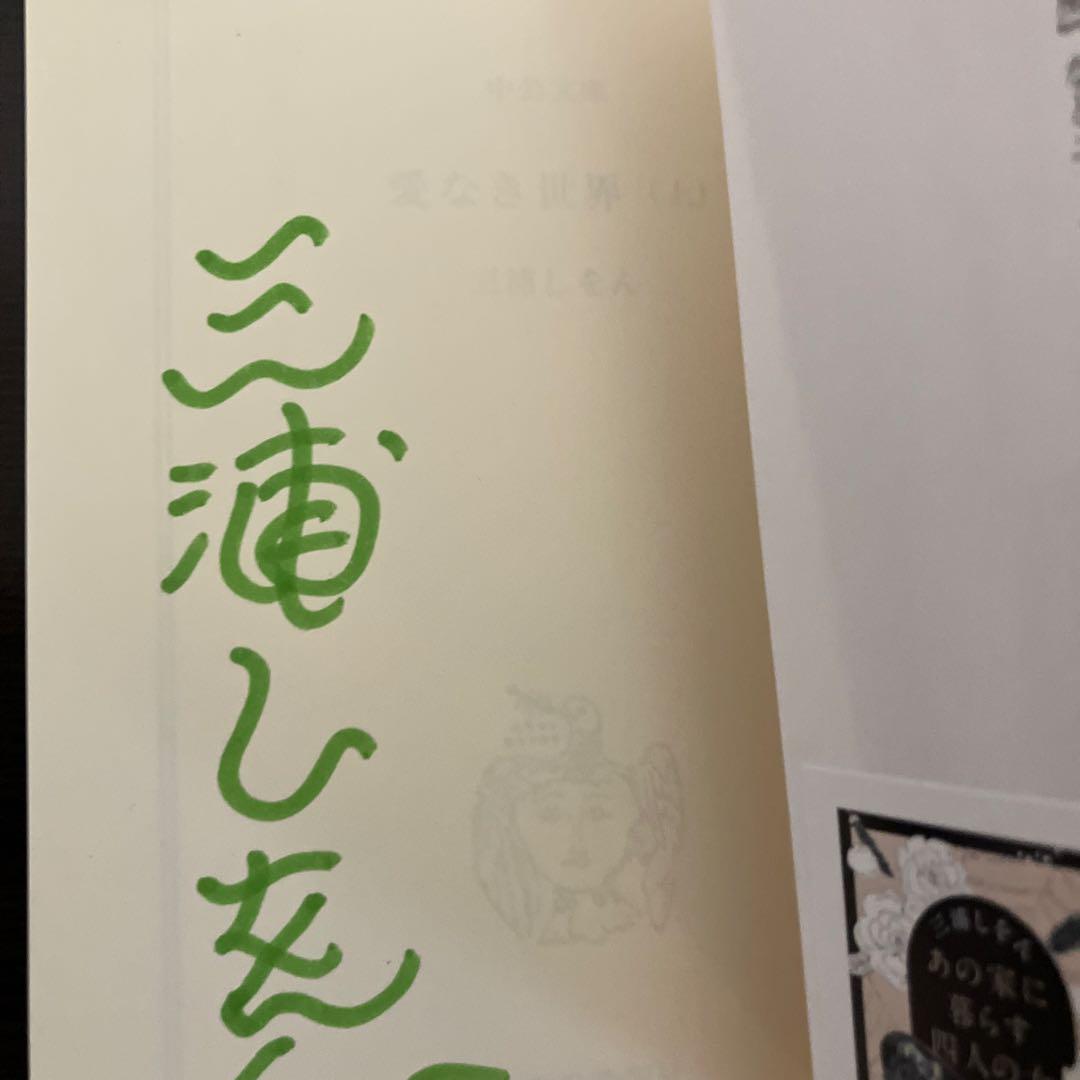 三浦しをん
中公文庫
愛なき世界（上）
三浦しをん
三浦しをん
あの家に
暮らす
四人の